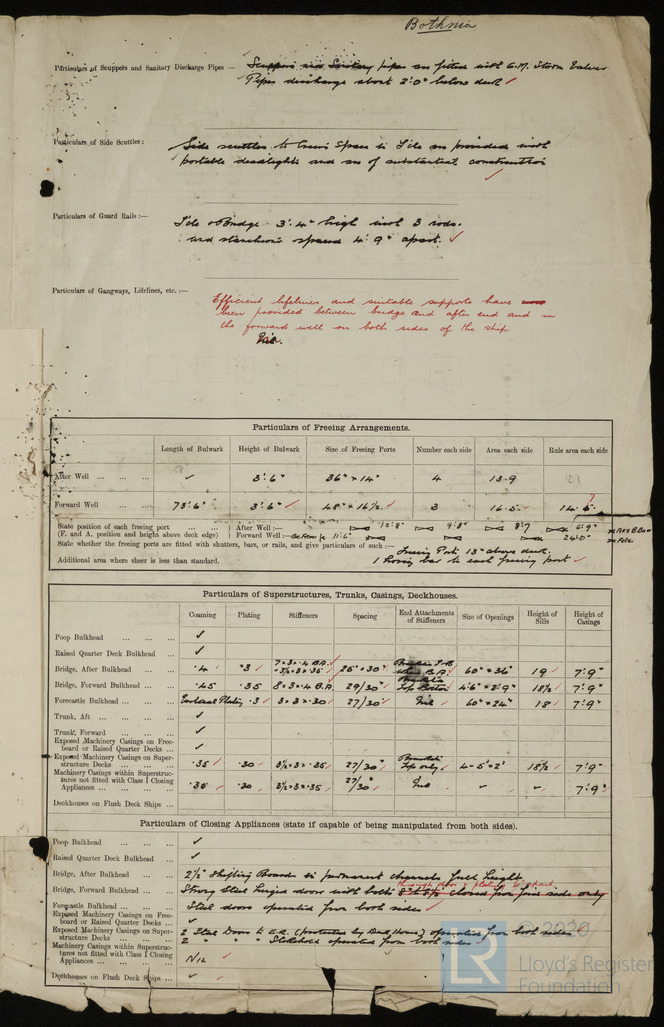 Bothnia
Particulars of Scuppers and Sanitary Discharge Pipes — Scuppers and Sanitary pipes are fitted with G.M. Storm Valves
Pipes discharge about 2'.0" below deck ✓
Particulars of Side Scuttles: Side scuttles to Crews Space in F'cle are provided with
portable deadlights and are of substantial construction
✓
Particulars of Guard Rails:— F'cle & Bridge 3'.4" high with 3 rods.
and stanchions spaced 4'.9" apart. ✓
Particulars of Gangways, Lifelines, etc.:—
Efficient lifelines and suitable supports have
been provided between bridge and after end and in
the forward well on both sides of the ship
Particulars of Freeing Arrangements.
Length of Bulwark Height of Bulwark Size of Freeing Ports Number each side Area each side Rule area each side
After Well ✓ 3'.6" 36" × 14" 4 13.9
Forward Well 73'.6" 3'.6" ✓ 48" × 16½ ✓ 3 16.5 ✓ 14.5
State position of each freeing port After Well:— 12'.8" 9'.3" 8'.7 6'.9"
(F. and A. position and height above deck edge) Forward Well:— 11'.6" 24'.0"
State whether the freeing ports are fitted with shutters, bars, or rails, and give particulars of such:— Freeing Ports 13" above deck.
Additional area where sheer is less than standard. 1 bar to each freeing port ✓
Particulars of Superstructures, Trunks, Casings, Deckhouses.
Coaming Plating Stiffeners Spacing End Attachments of Stiffeners Size of Openings Height of Sills Height of Casings
Poop Bulkhead ✓
Raised Quarter Deck Bulkhead ✓
Bridge, After Bulkhead .4 .3 7×3×.4 B.A. 60" × 36" 19 7'.9"
Bridge, Forward Bulkhead .45 .35 8×3×.4 B.A. 29/30" Top Bottom 18½ 7'.9"
Forecastle Bulkhead Plating .3 3×3×.30 27/30" Nil 60" × 24" 18 7'.9"
Trunk, Aft ✓
Trunk, Forward ✓
Exposed Machinery Casings on Free-
board or Raised Quarter Decks ✓
Exposed Machinery Casings on Super-
structure Decks .35 .30 27/30" Top only 18½ 7'.9"
Machinery Casings within Superstruc-
tures not fitted with Class I Closing
Appliances .30 .30 27/30" – – 7'.9"
Deckhouses on Flush Deck Ships
Particulars of Closing Appliances (state if capable of being manipulated from both sides).
Poop Bulkhead ✓
Raised Quarter Deck Bulkhead ✓
Bridge, After Bulkhead 2½" Shifting Boards in permanent channels full height
Bridge, Forward Bulkhead Strong Steel hinged door with bolts
Forecastle Bulkhead Steel doors operated from both sides ✓
Exposed Machinery Casings on Free-
board or Raised Quarter Decks ✓
Exposed Machinery Casings on Super-
structure Decks 2 Steel Doors to E.R. operated from both sides
2 " " " Stokehold operated from both sides
Machinery Casings within Superstruc-
tures not fitted with Class I Closing
Appliances NIL
Deckhouses on Flush Deck Ships ✓
LR
© 2020
Lloyd's Register
Foundation